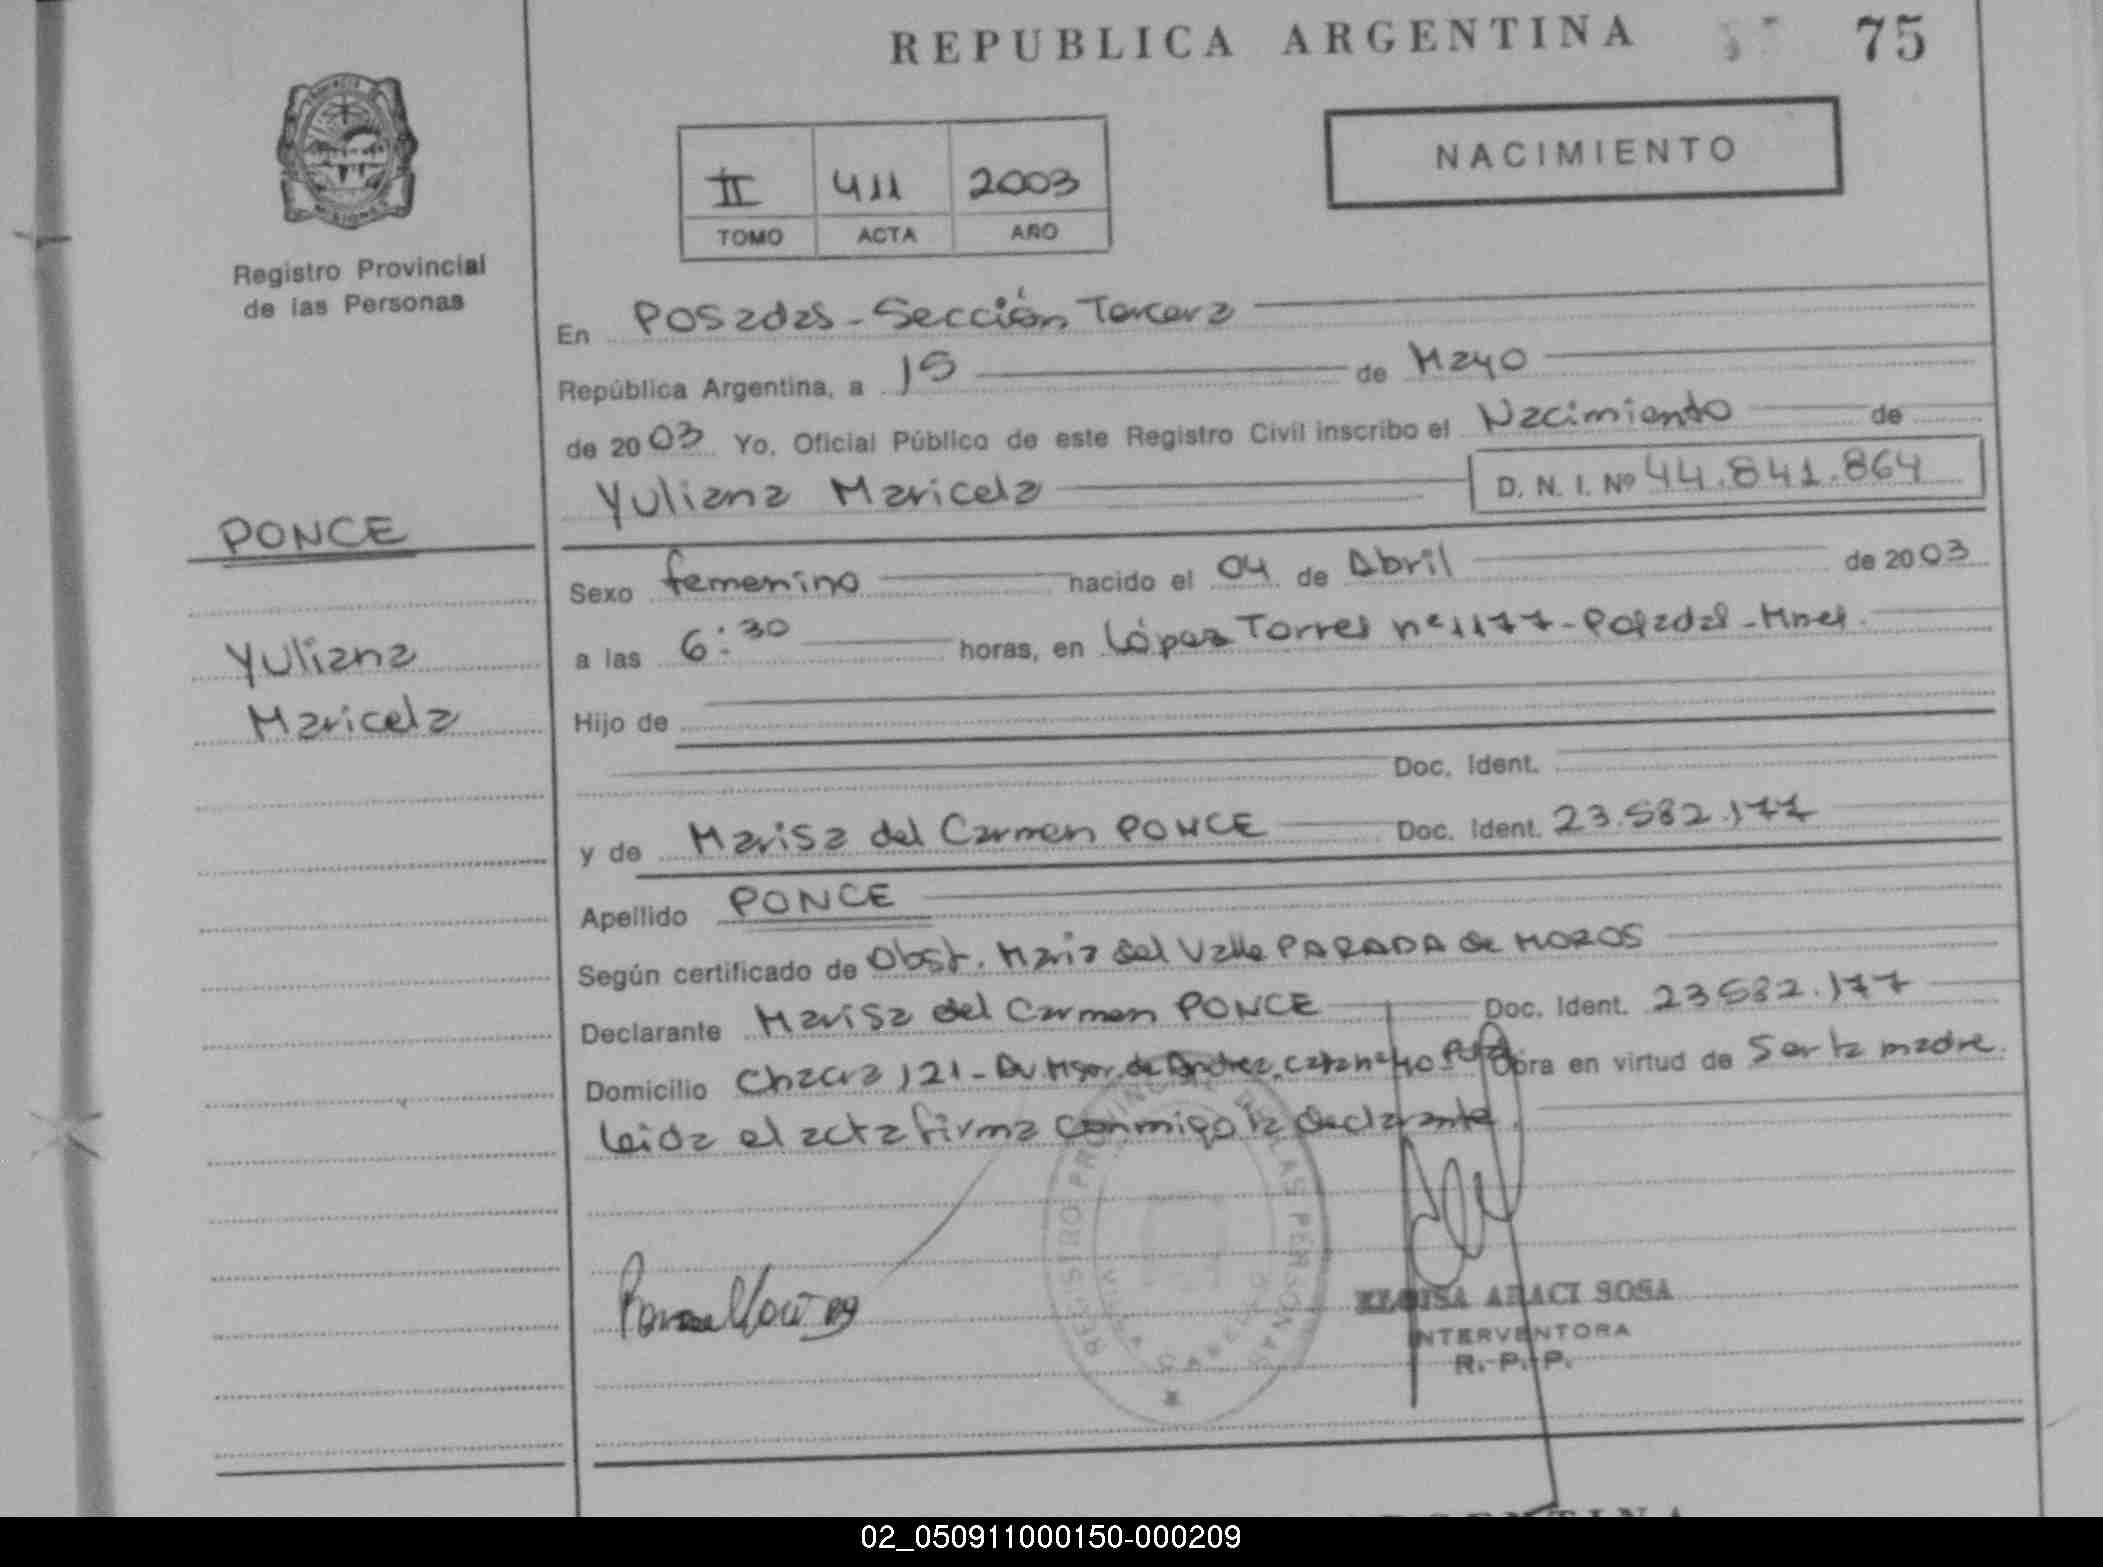 REPUBLICA ARGENTINA 75
NACIMIENTO
II 411 2003
TOMO ACTA AÑO
Registro Provincial
de las Personas
En Posadas - Sección Tercera
República Argentina, a 15 de Mayo
de 2003 Yo, Oficial Público de este Registro Civil inscribo el Nacimiento de
Yuliana Maricela D. N. I. Nº 44.841.864
PONCE
Yuliana
Maricela
Sexo femenino nacido el 04 de Abril de 2003
a las 6:30 horas, en López Torres nº 1177 - Posadas - Mnes.
Hijo de
Doc. Ident.
y de Marisa del Carmen PONCE Doc. Ident. 23.582.177
Apellido PONCE
Según certificado de Obst. Maria del Valle PARADA de MOROS
Declarante Marisa del Carmen PONCE Doc. Ident. 23582.177
Domicilio Chacra 121 - Av. Mgor. de Obra en virtud de Ser la madre.
Leida el acta firma conmigo la declarante.
REGISTRO PROVINCIAL DE LAS PERSONAS
ELOISA ARACI SOSA
INTERVENTORA
R. P. P.
02_050911000150-000209